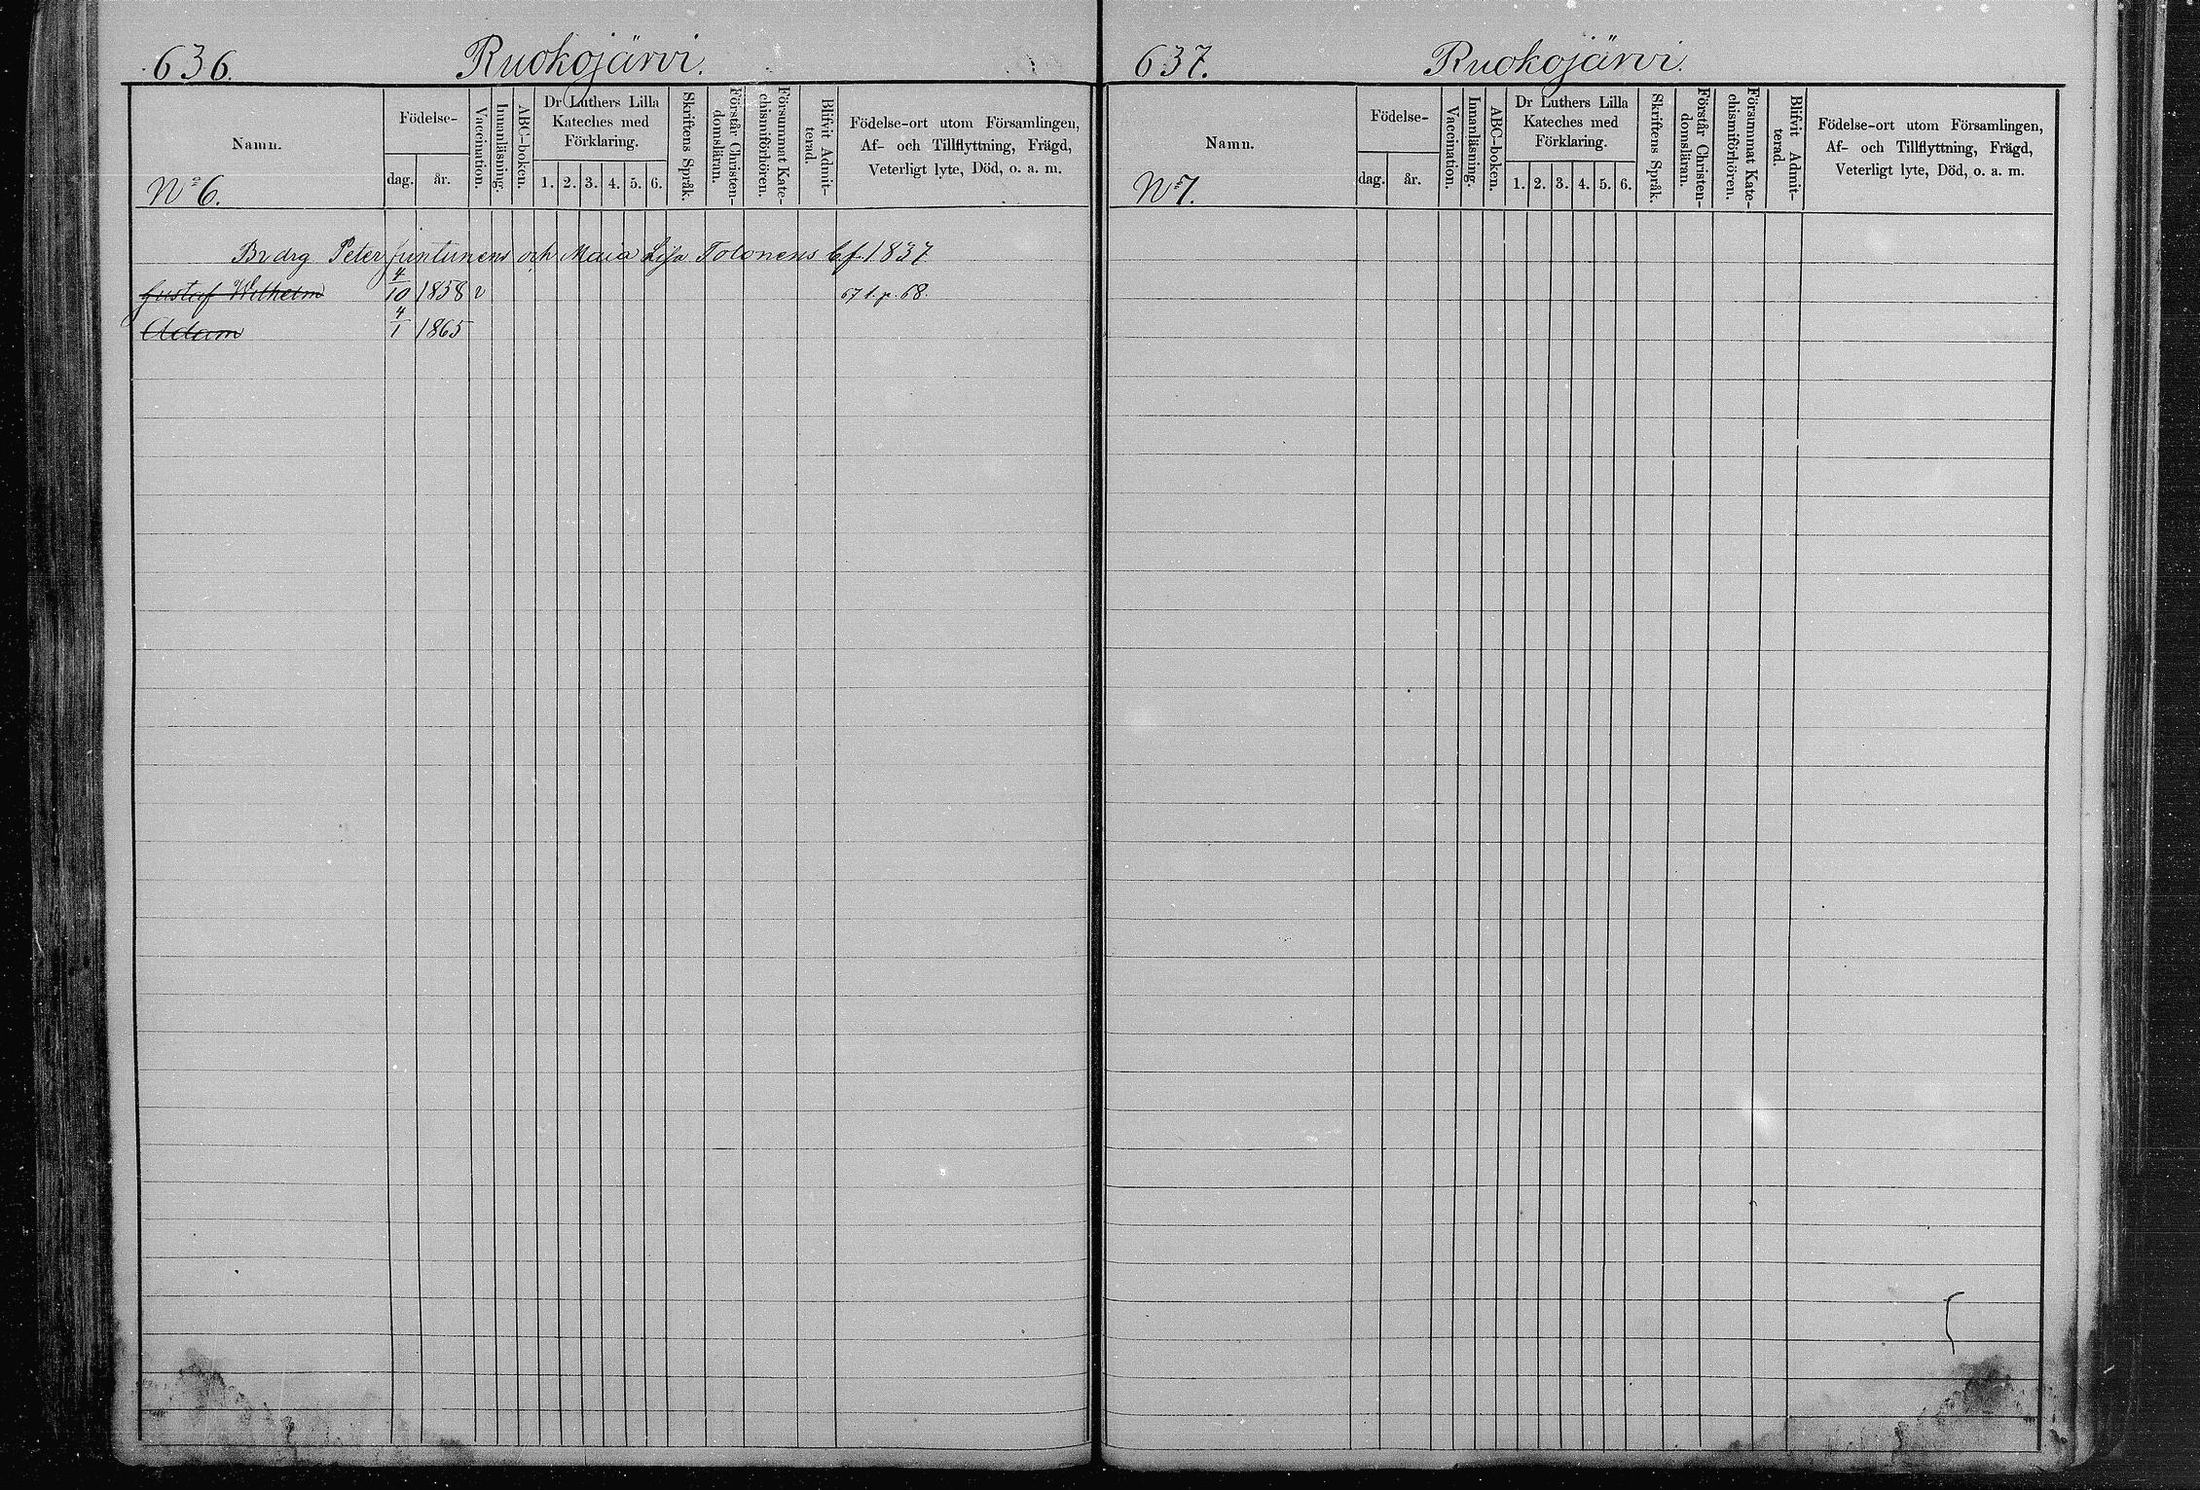 636. Ruokojärvi.
Namn.
Födelse-
dag. år.
Vaccination.
Innanläsning.
ABC-boken.
Dr Luthers Lilla
Kateches med
Förklaring.
1. 2. 3. 4. 5. 6.
Skriftens Språk.
Förstår Christen-
domsläran.
Försummat Kate-
chismiförhören.
Blifvit Admit-
terad.
Födelse-ort utom Församlingen,
Af- och Tillflyttning, Frägd,
Veterligt lyte, Död, o. a. m.
No 6.
Bndrg Peter Juntunens och Maia Lisa Tolonens bf. 1837
Gustaf Wilhelm 4/10 1858 v 67 f. p. 68.
Adam 4/1 1865
637. Ruokojärvi.
Namn.
Födelse-
dag. år.
Vaccination.
Innanläsning.
ABC-boken.
Dr Luthers Lilla
Kateches med
Förklaring.
1. 2. 3. 4. 5. 6.
Skriftens Språk.
Förstår Christen-
domsläran.
Försummat Kate-
chismiförhören.
Blifvit Admit-
terad.
Födelse-ort utom Församlingen,
Af- och Tillflyttning, Frägd,
Veterligt lyte, Död, o. a. m.
No 7.